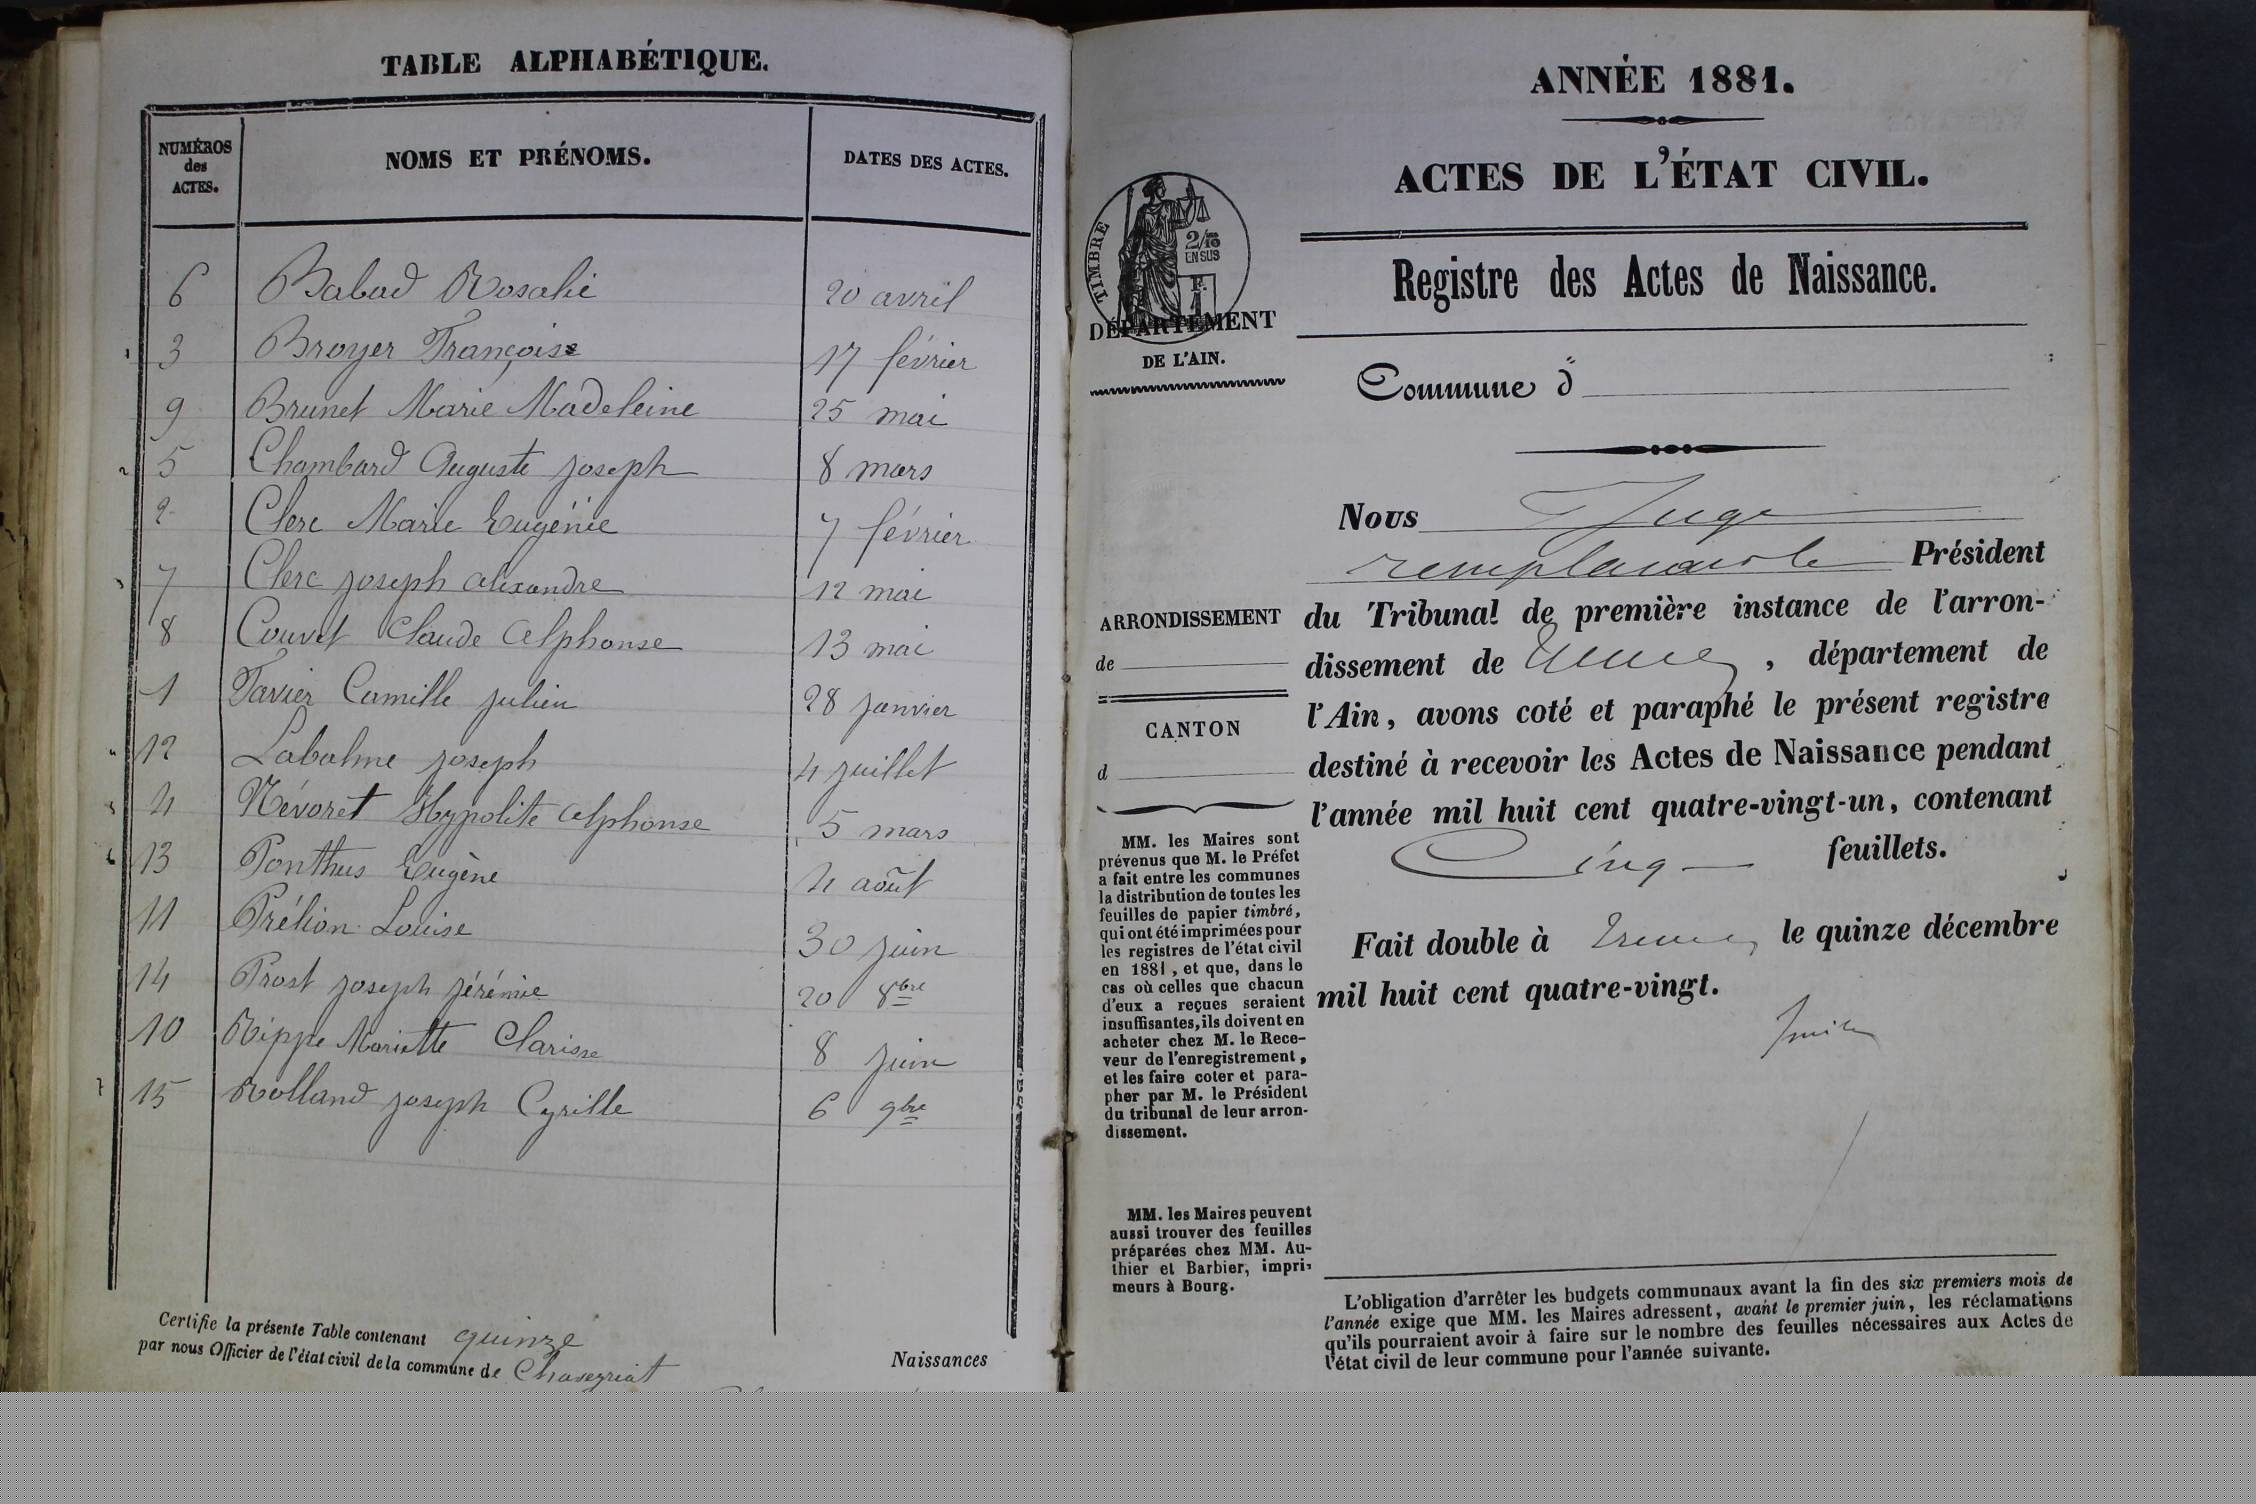 TABLE ALPHABÉTIQUE.
NUMÉROS des ACTES. NOMS ET PRÉNOMS. DATES DES ACTES.
6 Babad Rosalie 20 avril
3 Broyer Françoise 17 février
9 Brunet Marie Madeleine 25 mai
5 Chambard Auguste joseph 8 mars
2 Clerc Marie Eugénie 7 février
7 Clerc joseph alexandre 12 mai
8 Couvet Claude Alphonse 13 mai
1 Favier Camille julien 28 janvier
12 Labalme joseph 4 juillet
4 Névoret Hypolite Alphonse 5 mars
13 Ponthus Eugène 4 août
11 Prélion Louise 30 juin
14 Prost joseph jérémie 20 8bre
10 Rippe Mariette Clarisse 8 juin
15 Rolland joseph Cyrille 6 9bre
Certifie la présente Table contenant quinze
par nous Officier de l'état civil de la commune de Chaveyriat
Naissances
ANNÉE 1881.
ACTES DE L'ÉTAT CIVIL.
TIMBRE
2/10
EN SUS
F.
1
Registre des Actes de Naissance.
DÉPARTEMENT
DE L'AIN.
Commune d
Nous Juge
remplaçant le Président
ARRONDISSEMENT
de
CANTON
d
du Tribunal de première instance de l'arron-
dissement de , département de
l'Ain, avons coté et paraphé le présent registre
destiné à recevoir les Actes de Naissance pendant
l'année mil huit cent quatre-vingt-un, contenant
Cinq feuillets.
Fait double à le quinze décembre
mil huit cent quatre-vingt.
MM. les Maires sont
prévenus que M. le Préfet
a fait entre les communes
la distribution de toutes les
feuilles de papier timbré,
qui ont été imprimées pour
les registres de l'état civil
en 1881, et que, dans le
cas où celles que chacun
d'eux a reçues seraient
insuffisantes, ils doivent en
acheter chez M. le Rece-
veur de l'enregistrement,
et les faire coter et para-
pher par M. le Président
du tribunal de leur arron-
dissement.
MM. les Maires peuvent
aussi trouver des feuilles
préparées chez MM. Au-
thier et Barbier, impri-
meurs à Bourg.
L'obligation d'arrêter les budgets communaux avant la fin des six premiers mois de
l'année exige que MM. les Maires adressent, avant le premier juin, les réclamations
qu'ils pourraient avoir à faire sur le nombre des feuilles nécessaires aux Actes de
l'état civil de leur commune pour l'année suivante.